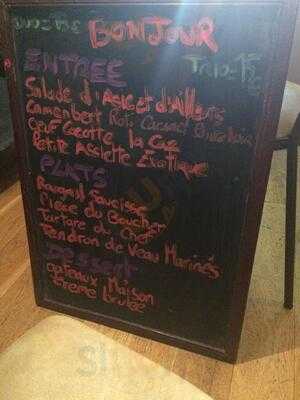 BONJOUR
ENTREE
Salade d'Asie et d'Ailleurs
Camembert Roti
Oeuf Cocotte la Cas
Petite Assiette Exotique
PLATS
Rougail Saucisse
Piece du Boucher
Tartare du Chef
Tendron de Veau Marinés
Dessert
Gateaux Maison
Creme Brulee